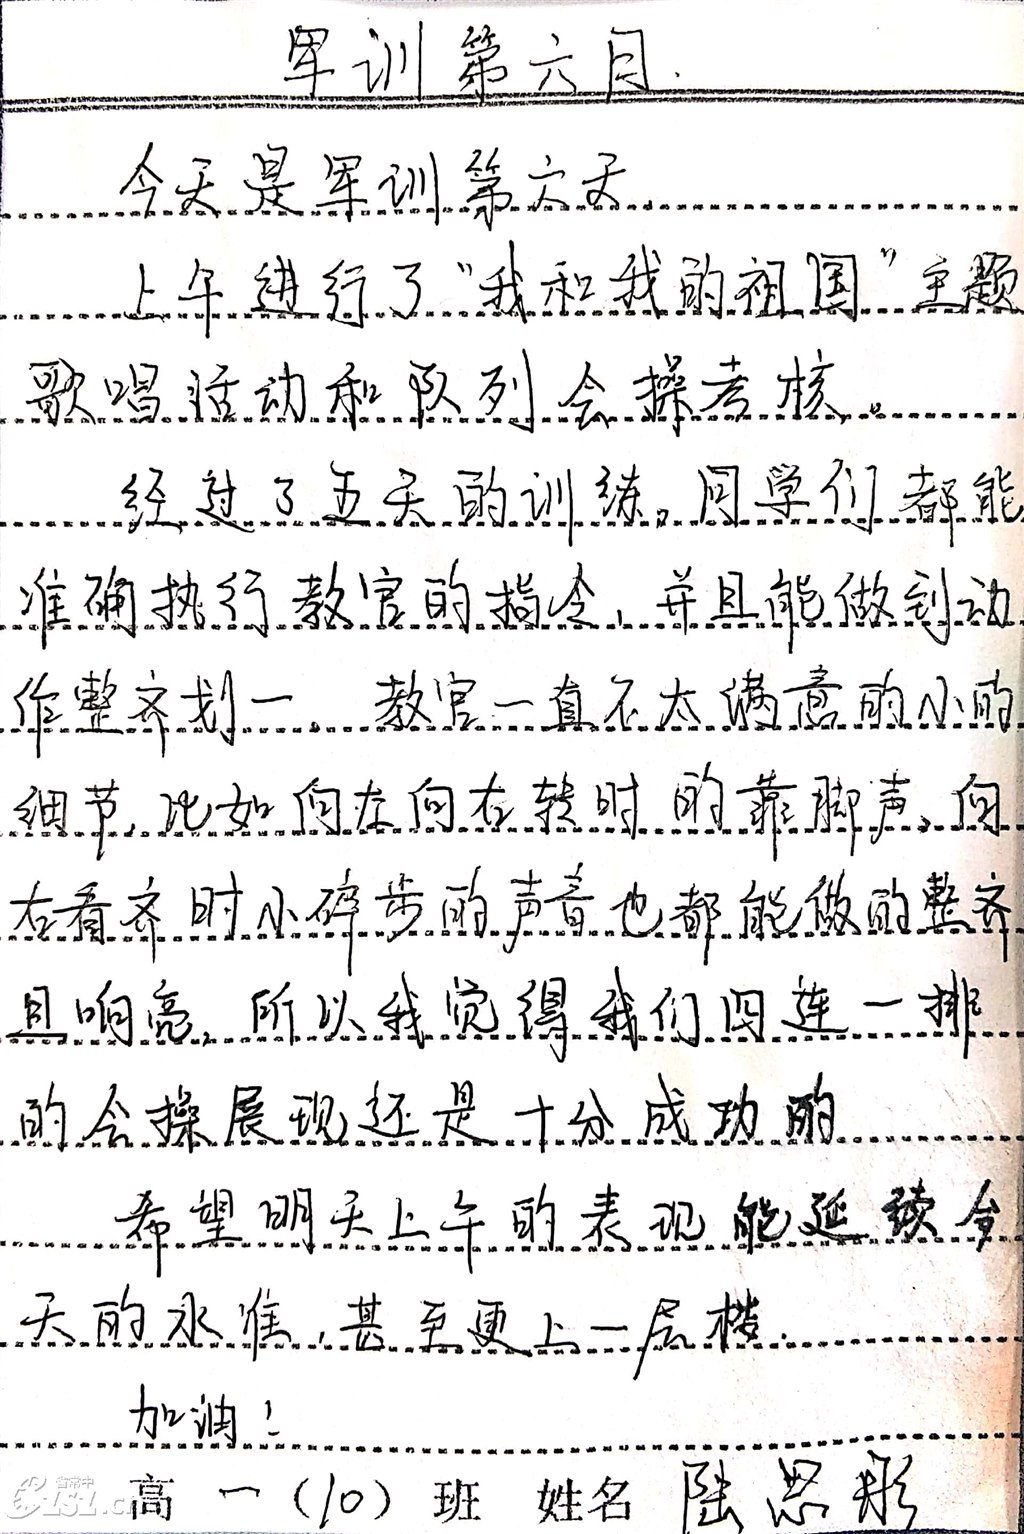 军训第六日.
今天是军训第六天.
上午进行了“我和我的祖国”主题
歌唱活动和队列会操考核。
经过了五天的训练,同学们都能
准确执行教官的指令,并且能做到动
作整齐划一.教官一直不太满意的小的
细节,比如向左向右转时的靠脚声,向
右看齐时小碎步的声音也都能做的整齐
且响亮,所以我觉得我们四连一排
的会操展现还是十分成功的
希望明天上午的表现能延续今
天的水准,甚至更上一层楼.
加油!
高一(10)班 姓名 陆思彤
省常中